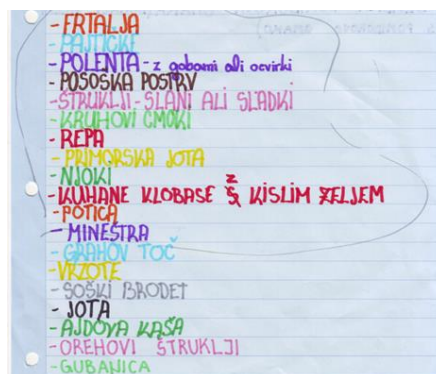 - FRTALJA
- PAJTIČKE
- POLENTA - z gobami ali ocvirki
- POSOŠKA POSTRV
- ŠTRUKLJI - SLANI ALI SLADKI
- KRUHOVI CMOKI
- REPA
- PRIMORSKA JOTA
- NJOKI
- KUHANE KLOBASE Z KISLIM ZELJEM
- POTICA
- MINEŠTRA
- GRAHOV TOČ
- VRZOTE
- SOŠKI BRODET
- JOTA
- AJDOVA KAŠA
- OREHOVI ŠTRUKLJI
- GUBANICA